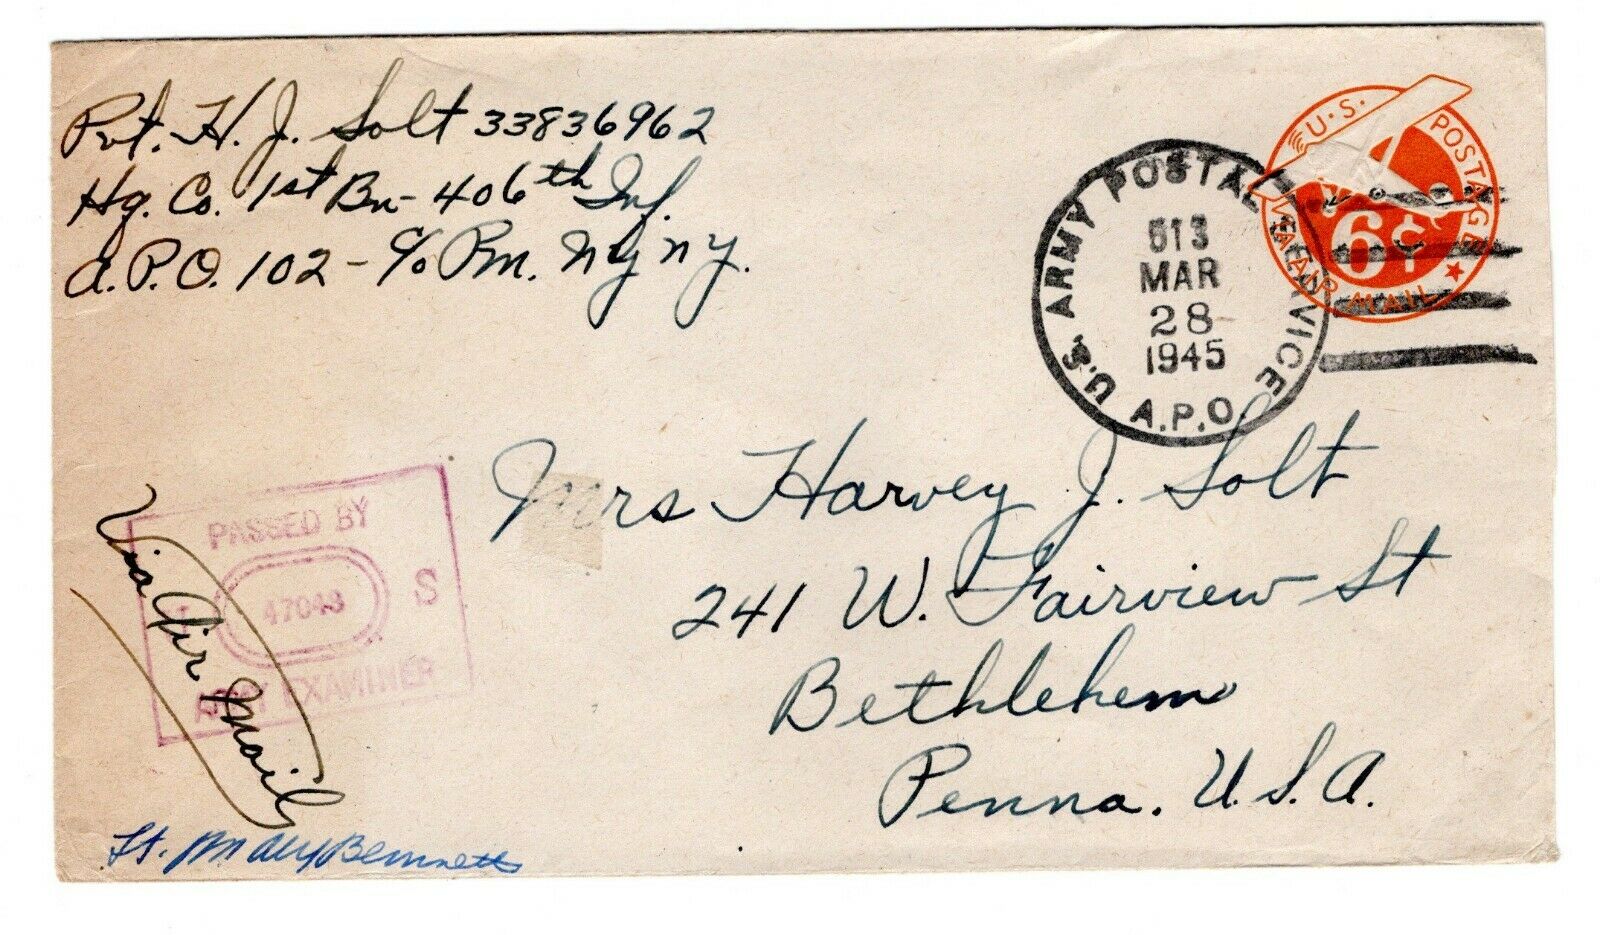 Pvt. H. J. Solt 33836962
Hq. Co. 1st Bn - 406th Inf.
A.P.O. 102 - c/o Pm. Ny ny.
U.S. POSTAGE
VIA AIR MAIL
6¢
U.S. ARMY POSTAL SERVICE
A.P.O.
513
MAR
28
1945
Mrs Harvey J. Solt
241 W. Fairview St
Bethlehem
Penna. U.S.A.
PASSED BY
47048 S
ARMY EXAMINER
Via Air Mail
Lt. Bennett